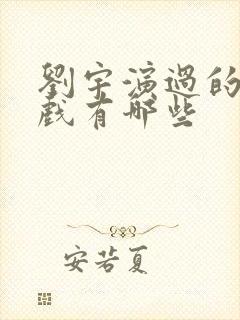 劉宇演過的
戲有哪些
安若夏